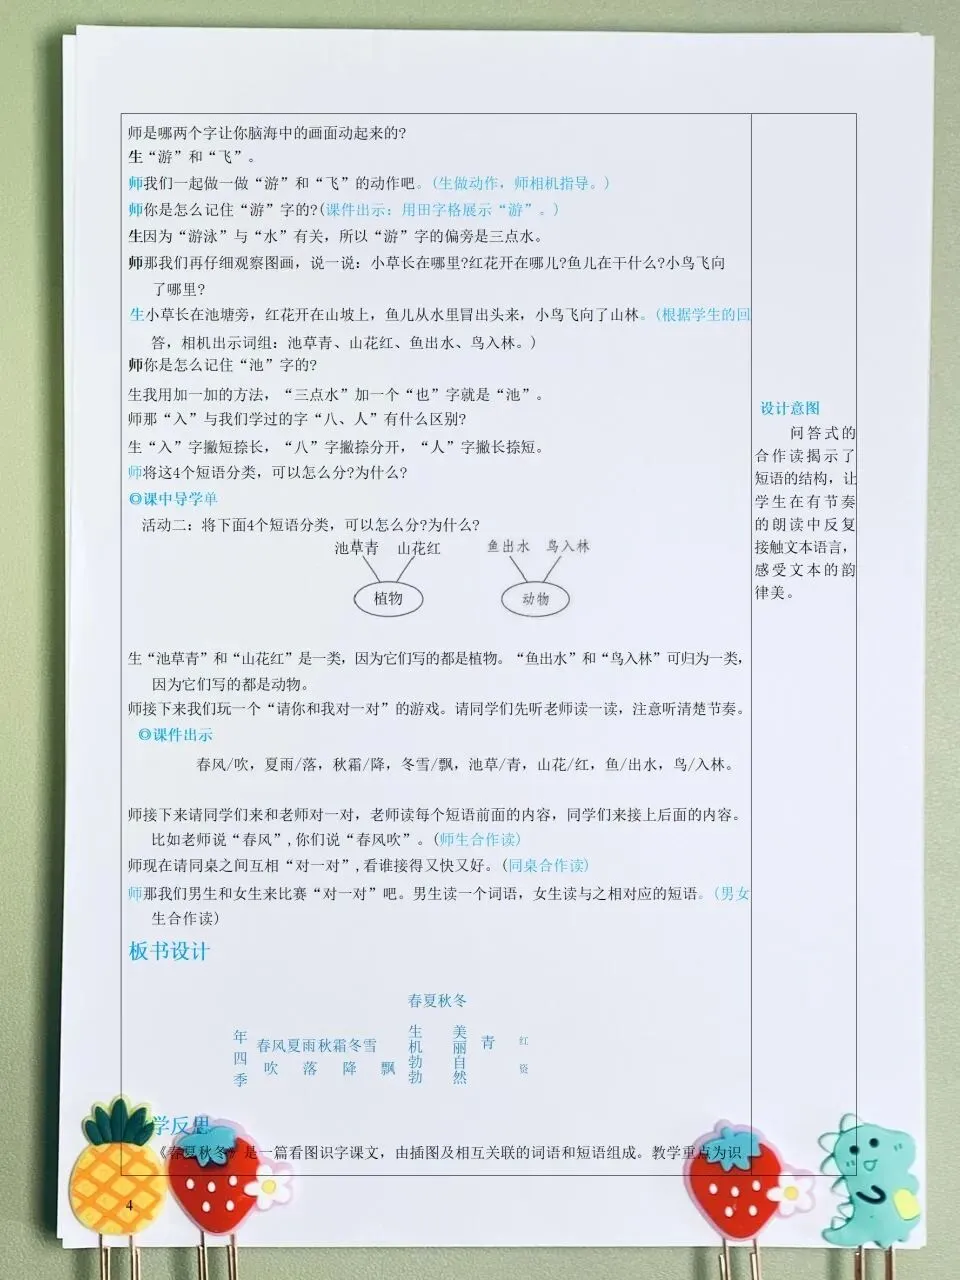 师是哪两个字让你脑海中的画面动起来的?
生“游”和“飞”。
师我们一起做一做“游”和“飞”的动作吧。(生做动作，师相机指导。)
师你是怎么记住“游”字的?(课件出示：用田字格展示“游”。)
生因为“游泳”与“水”有关，所以“游”字的偏旁是三点水。
师那我们再仔细观察图画，说一说：小草长在哪里?红花开在哪儿?鱼儿在干什么?小鸟飞向
了哪里?
生小草长在池塘旁，红花开在山坡上，鱼儿从水里冒出头来，小鸟飞向了山林。(根据学生的回
答，相机出示词组：池草青、山花红、鱼出水、鸟入林。)
师你是怎么记住“池”字的?
生我用加一加的方法，“三点水”加一个“也”字就是“池”。
师那“入”与我们学过的字“八、人”有什么区别?
生“入”字撇短捺长，“八”字撇捺分开，“人”字撇长捺短。
师将这4个短语分类，可以怎么分?为什么?
◎课中导学单
活动二：将下面4个短语分类，可以怎么分?为什么?
池草青 山花红 鱼出水 鸟入林
植物 动物
生“池草青”和“山花红”是一类，因为它们写的都是植物。“鱼出水”和“鸟入林”可归为一类，
因为它们写的都是动物。
师接下来我们玩一个“请你和我对一对”的游戏。请同学们先听老师读一读，注意听清楚节奏。
◎课件出示
春风/吹，夏雨/落，秋霜/降，冬雪/飘，池草/青，山花/红，鱼/出水，鸟/入林。
师接下来请同学们来和老师对一对，老师读每个短语前面的内容，同学们来接上后面的内容。
比如老师说“春风”,你们说“春风吹”。(师生合作读)
师现在请同桌之间互相“对一对”,看谁接得又快又好。(同桌合作读)
师那我们男生和女生来比赛“对一对”吧。男生读一个词语，女生读与之相对应的短语。(男女
生合作读)
板书设计
春夏秋冬
年四季
春风夏雨秋霜冬雪
吹 落 降 飘
生机勃勃
美丽自然
青
红
资
学反思
《春夏秋冬》是一篇看图识字课文，由插图及相互关联的词语和短语组成。教学重点为识
4
设计意图
问答式的
合作读揭示了
短语的结构，让
学生在有节奏
的朗读中反复
接触文本语言，
感受文本的韵
律美。